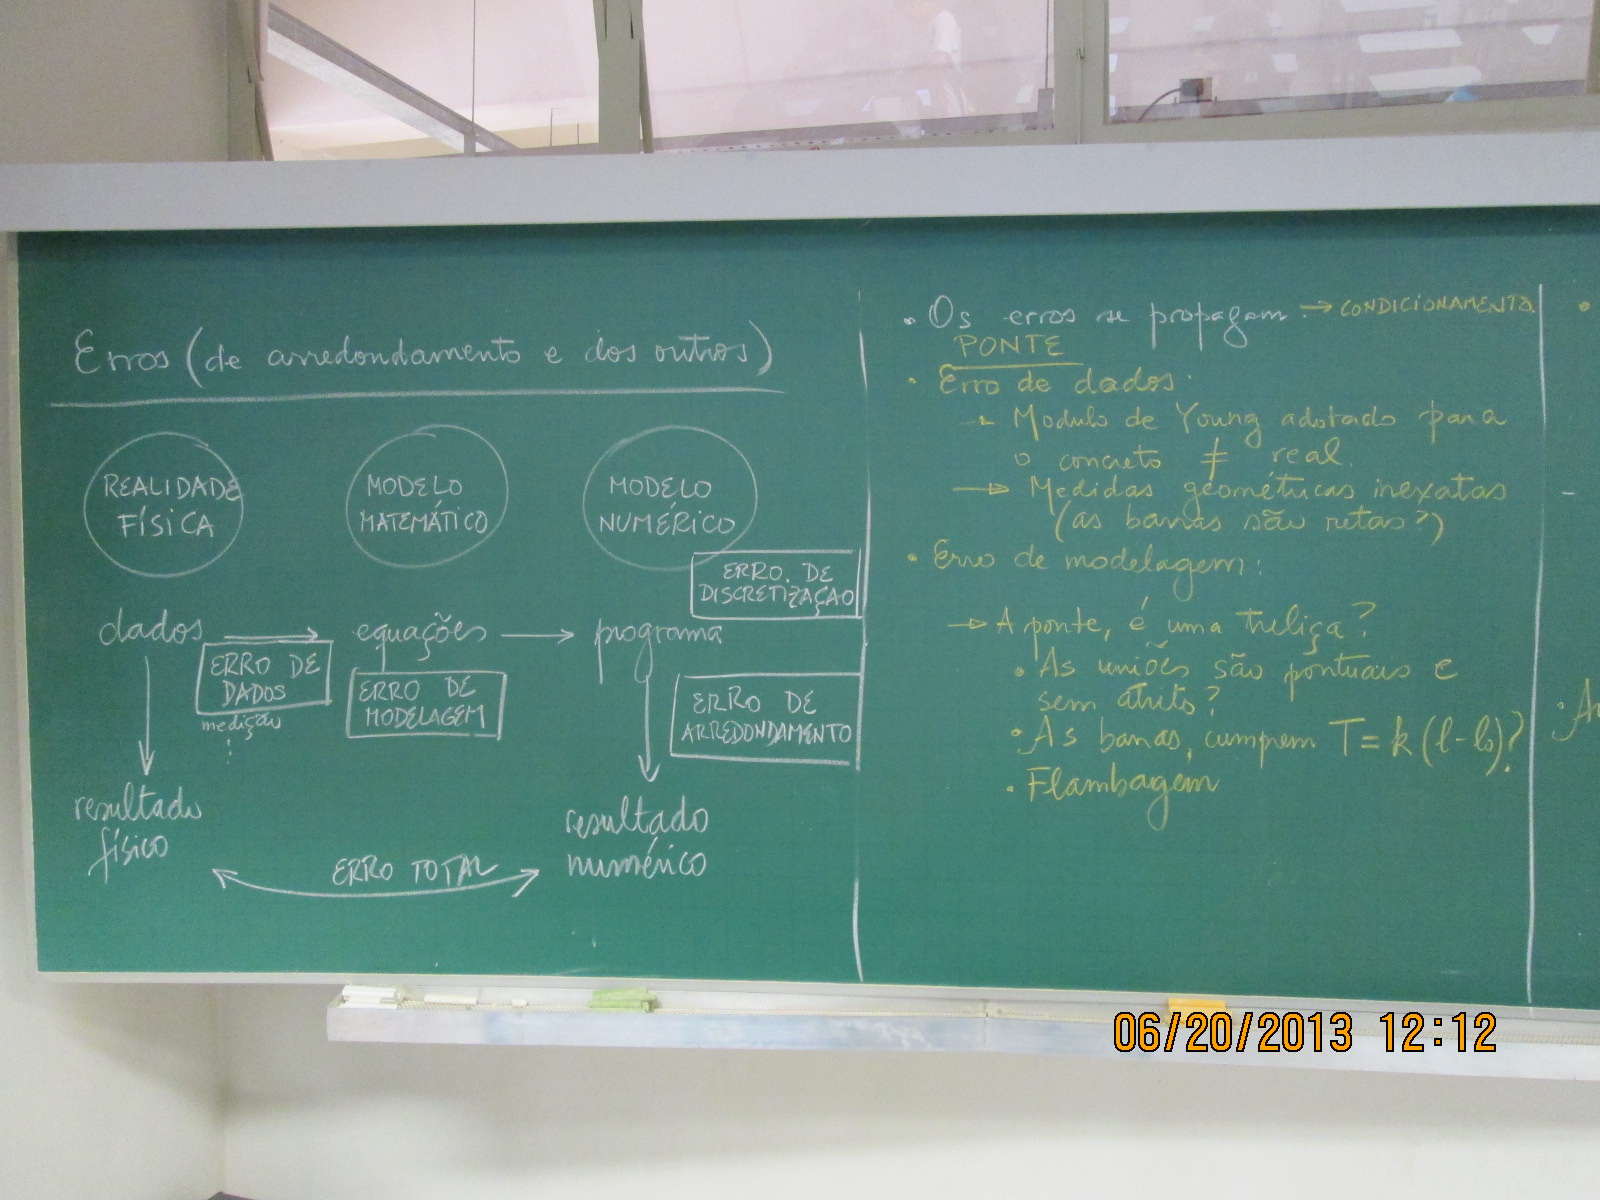 Erros (de arredondamento e dos outros)
REALIDADE
FÍSICA
MODELO
MATEMÁTICO
MODELO
NUMÉRICO
ERRO DE
DISCRETIZAÇÃO
dados → equações → programa
ERRO DE
DADOS
medição
ERRO DE
MODELAGEM
ERRO DE
ARREDONDAMENTO
resultado
físico
resultado
numérico
ERRO TOTAL
• Os erros se propagam. → CONDICIONAMENTO.
PONTE
• Erro de dados:
→ Modulo de Young adotado para
o concreto ≠ real.
→ Medidas géométricas inexatas
(as barras são retas?)
• Erro de modelagem:
→ A ponte, é uma treliça?
• As uniões são pontuais e
sem atrito?
• As barras, cumprem T = k (l - l₀)?
• Flambagem
06/20/2013 12:12